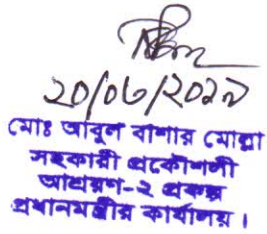 ২০/০৬/২০১৯
মোঃ আবুল বাশার মোল্লা
সহকারী প্রকৌশলী
আশ্রয়ণ-২ প্রকল্প
প্রধানমন্ত্রীর কার্যালয়।